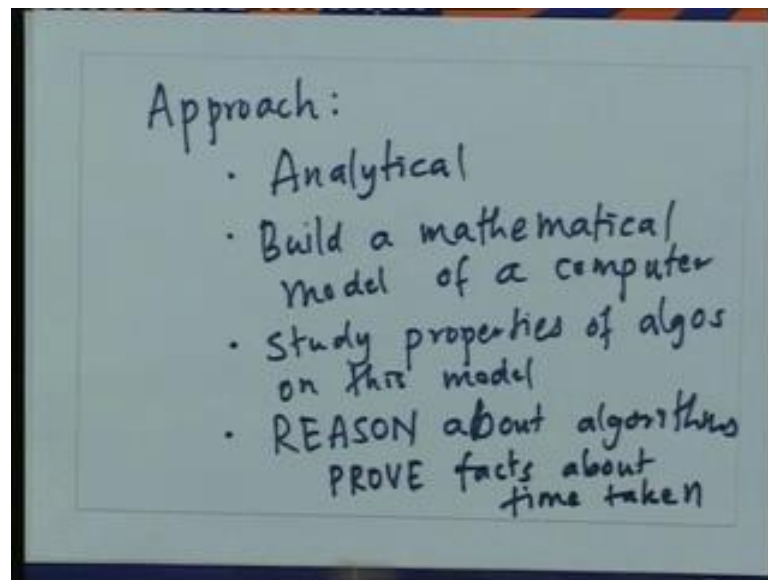 Approach:
· Analytical
· Build a mathematical
model of a computer
· Study properties of algos
on this model
· REASON about algorithms
PROVE facts about
time taken